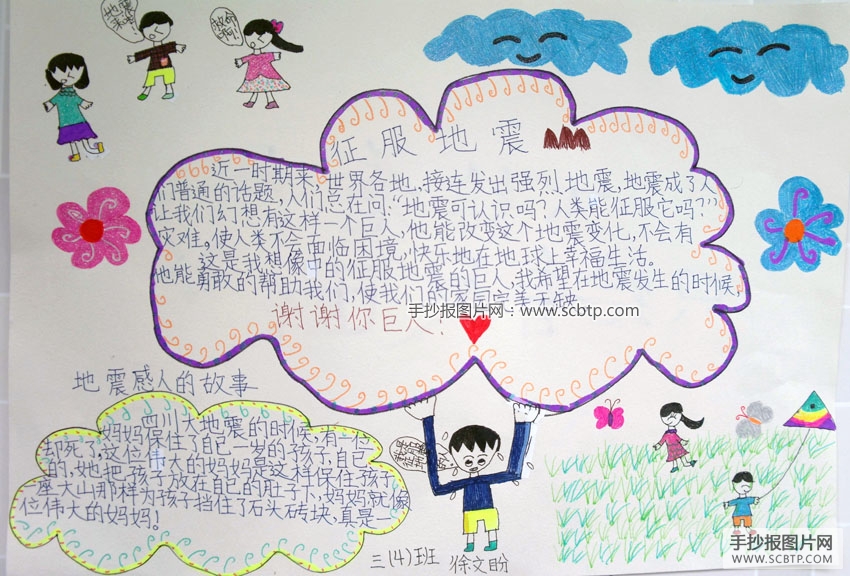 地震来啦!
救命啊!
征服地震
近一时期来,世界各地,接连发出强烈地震,地震成了人
们普通的话题,人们总在问:“地震可认识吗?人类能征服它吗?”
让我们幻想有这样一个巨人,他能改变这个地震变化,不会有
灾难。使人类不会面临困境,快乐地在地球上幸福生活。
这是我想像中的征服地震的巨人,我希望在地震发生的时候,
他能勇敢的帮助我们,使我们的家园完美无缺
手抄报图片网:www.scbtp.com
谢谢你巨人!
地震感人的故事
四川大地震的时候,有一位
妈妈保住了自己一岁的孩子,自己
却死了,这位伟大的妈妈是这样保住孩子
的,她把孩子放在自己的肚子下,妈妈就像
座大山那样为孩子挡住了石头砖块,真是一
位伟大的妈妈!
三(4)班 徐文盼
手抄报图片网
WWW.SCBTP.COM